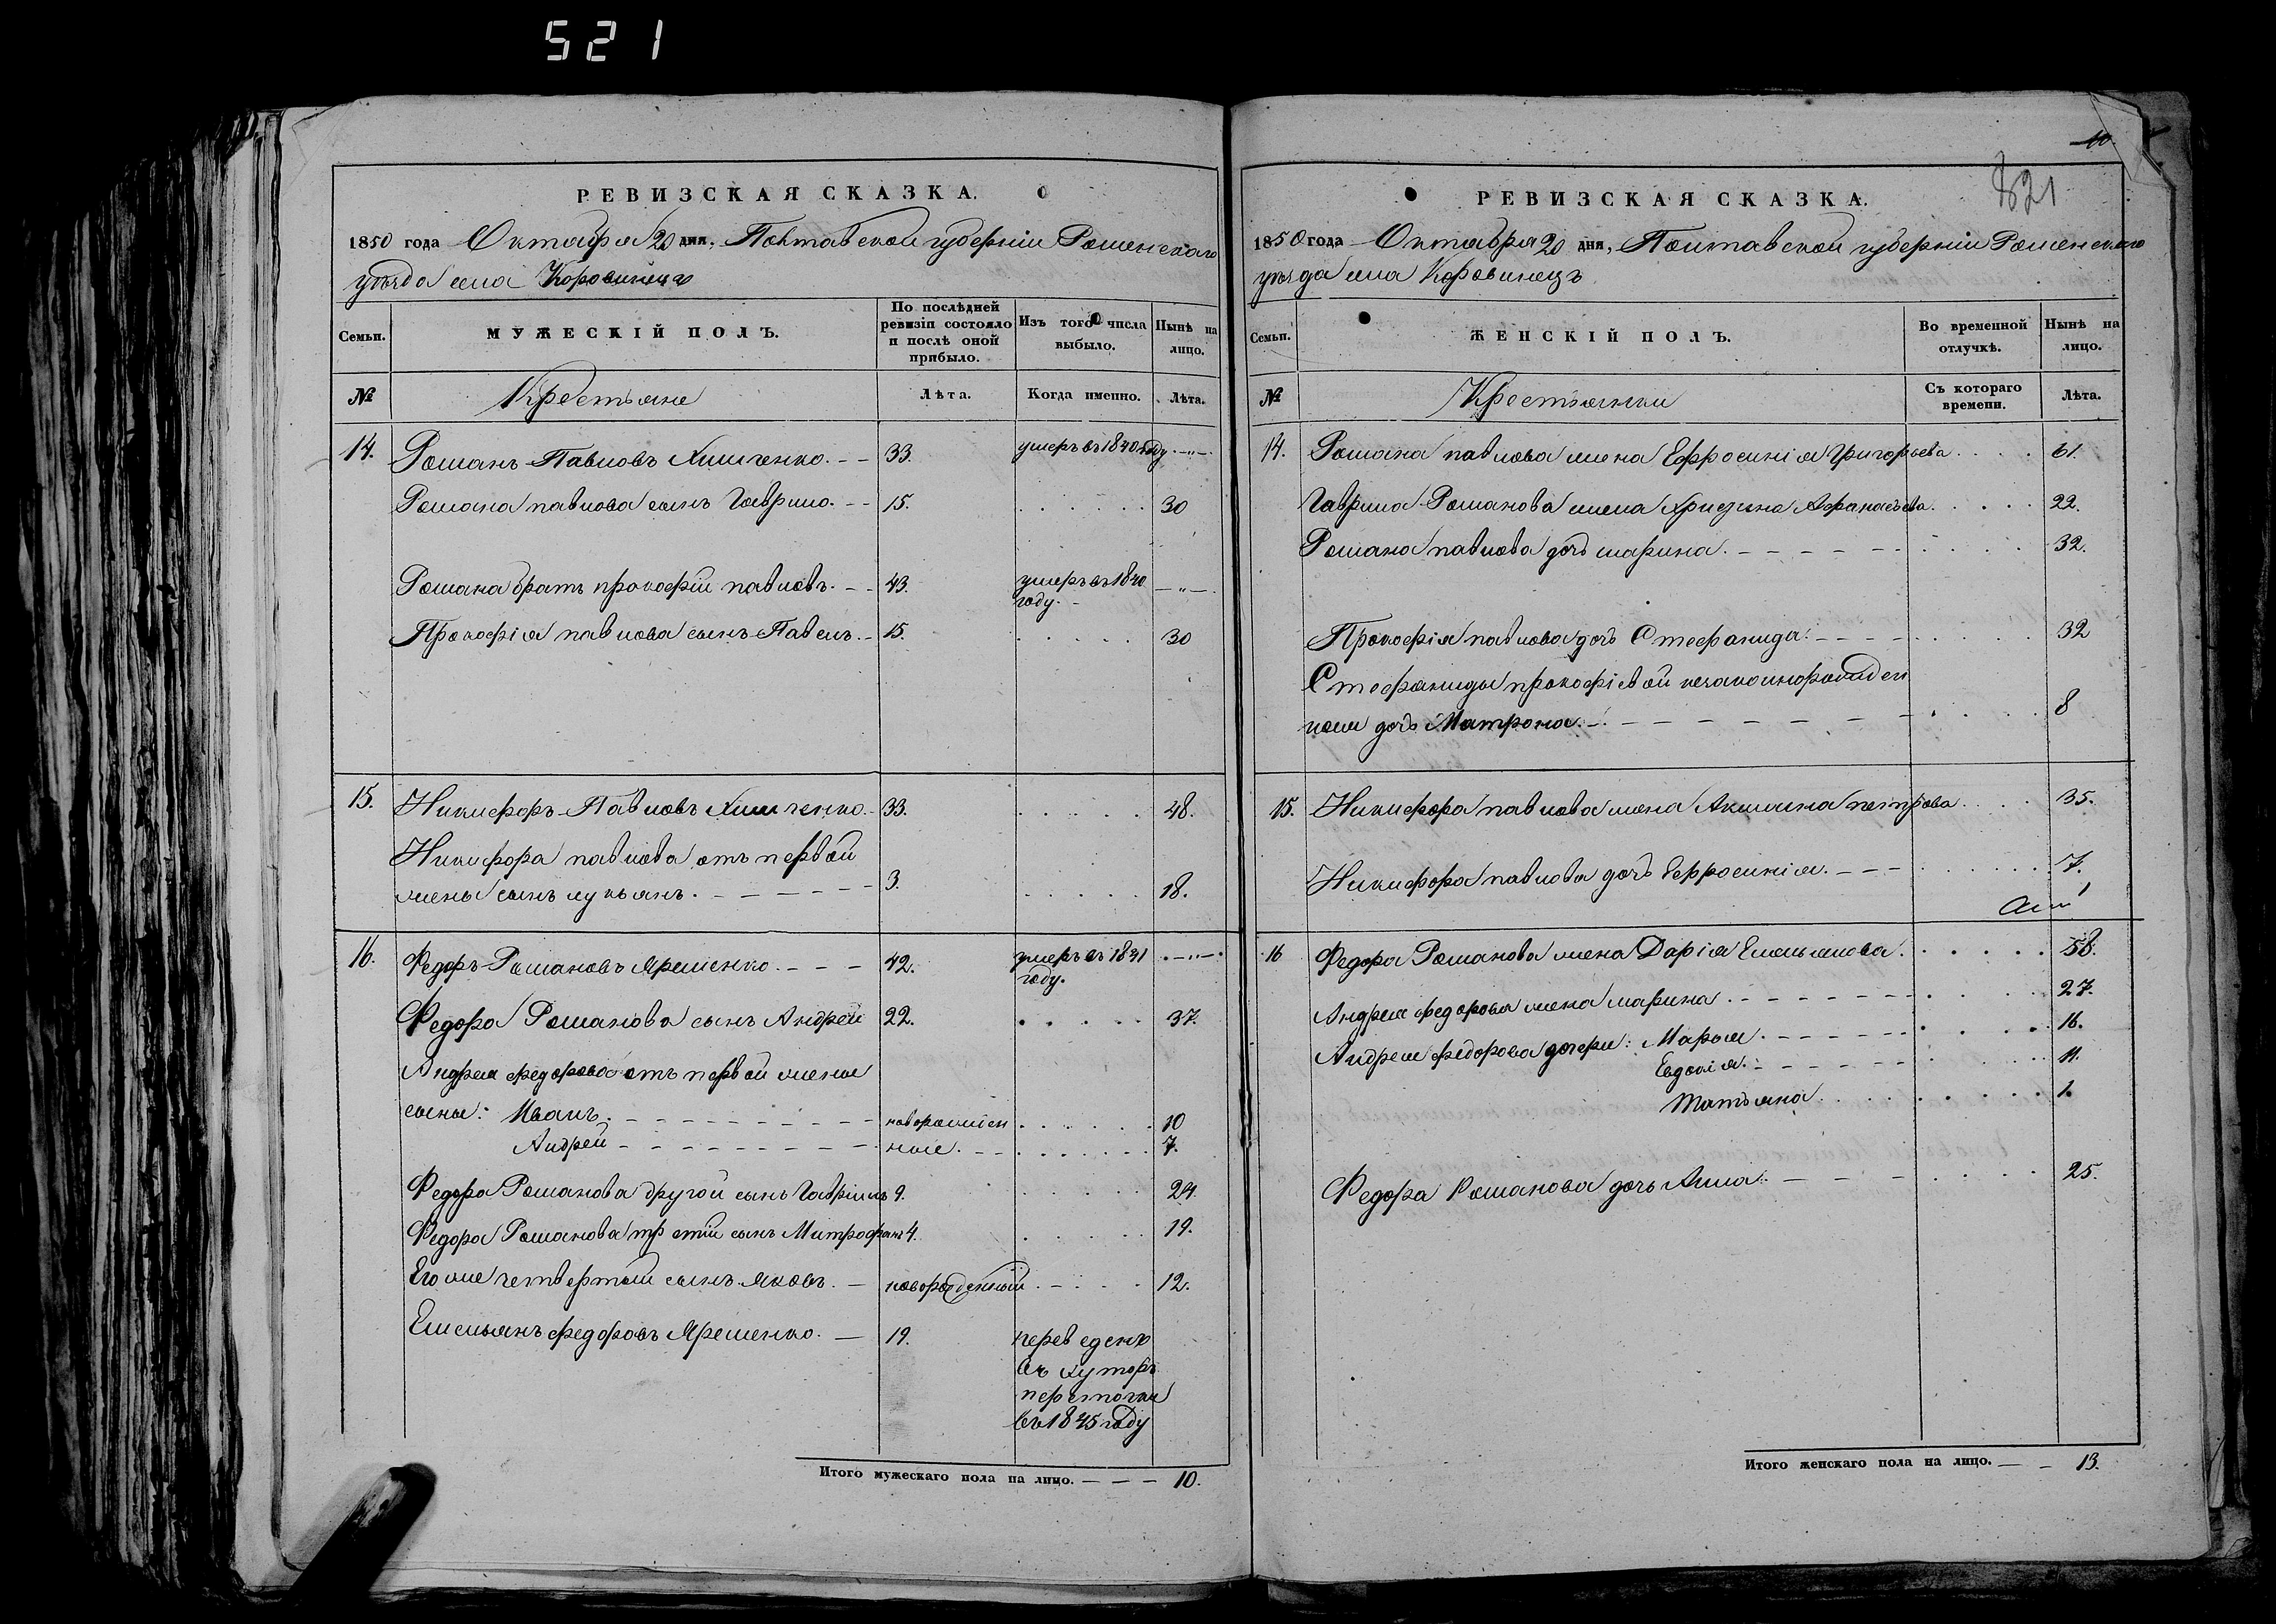 521
РЕВИЗСКАЯ СКАЗКА.
1850 года Октября 20 дня, Полтавской губерніи Роменскаго
уѣзда села Коровинецъ
Семьи.
МУЖЕСКІЙ ПОЛЪ.
По послѣдней ревизіи состояло и послѣ оной прибыло.
Изъ того числа выбыло.
Нынѣ на лицо.
№
Крестьяне
Лѣта.
Когда именно.
Лѣта.
14. Романъ Павловъ Химченко. 33. умеръ въ 1840 году. -"-
Романа павлова сынъ Гаврило. 15. 30
Романа братъ прокофій павловъ. 43. умеръ въ 1840 -"-
году.
Прокофія павлова сынъ Павелъ. 15. 30
15. Никифоръ Павловъ Химченко. 33. 48.
Никифора павлова отъ первой
жены сынъ лукьянъ. 3. 18.
16. Федоръ Романовъ Яременко. 42. умеръ въ 1841 -"-
году.
Федора Романова сынъ Андрей 22. 37.
Андрея федорова отъ первой жены
сыны: Иванъ. новорожден 10
Андрей ные. 7.
Федора Романова другой сынъ Гавріилъ 9. 24.
Федора Романова третій сынъ Митрофанъ 4. 19.
Его же четвертый сынъ яковъ. новорожденный 12.
Емельянъ федоровъ Яременко. 19. переведенъ
въ хуторъ
въ 1845 году
Итого мужескаго пола на лицо. 10.
10.
521
РЕВИЗСКАЯ СКАЗКА.
1850 года Октября 20 дня, Полтавской губерніи Роменскаго
уѣзда села Коровинецъ
Семьи.
ЖЕНСКІЙ ПОЛЪ.
Во временной отлучкѣ.
Нынѣ на лицо.
№
Крестьянки
Съ котораго времени.
Лѣта.
14. Романа павлова жена Ефросинія Григорьева 61.
Гаврила Романова жена Христина Афанасьева. 22.
Романа павлова дочь марина. 32.
Прокофія павлова дочь Стефанида. 32
Стефаниды прокофіевой незаконорожден
ная дочь Матрона. 8
15. Никифора павлова жена Акилина петрова 35.
Никифора павлова дочь Ефросинія. 7.
16 Федора Романова жена Дарія Емельянова. 58.
Андрея федорова жена марина. 27.
Андрея федорова дочери: Марья. 16.
Евдокія. 11.
Татьяна. 1.
Федора Романова дочь Анна. 25.
Итого женскаго пола на лицо. 13.